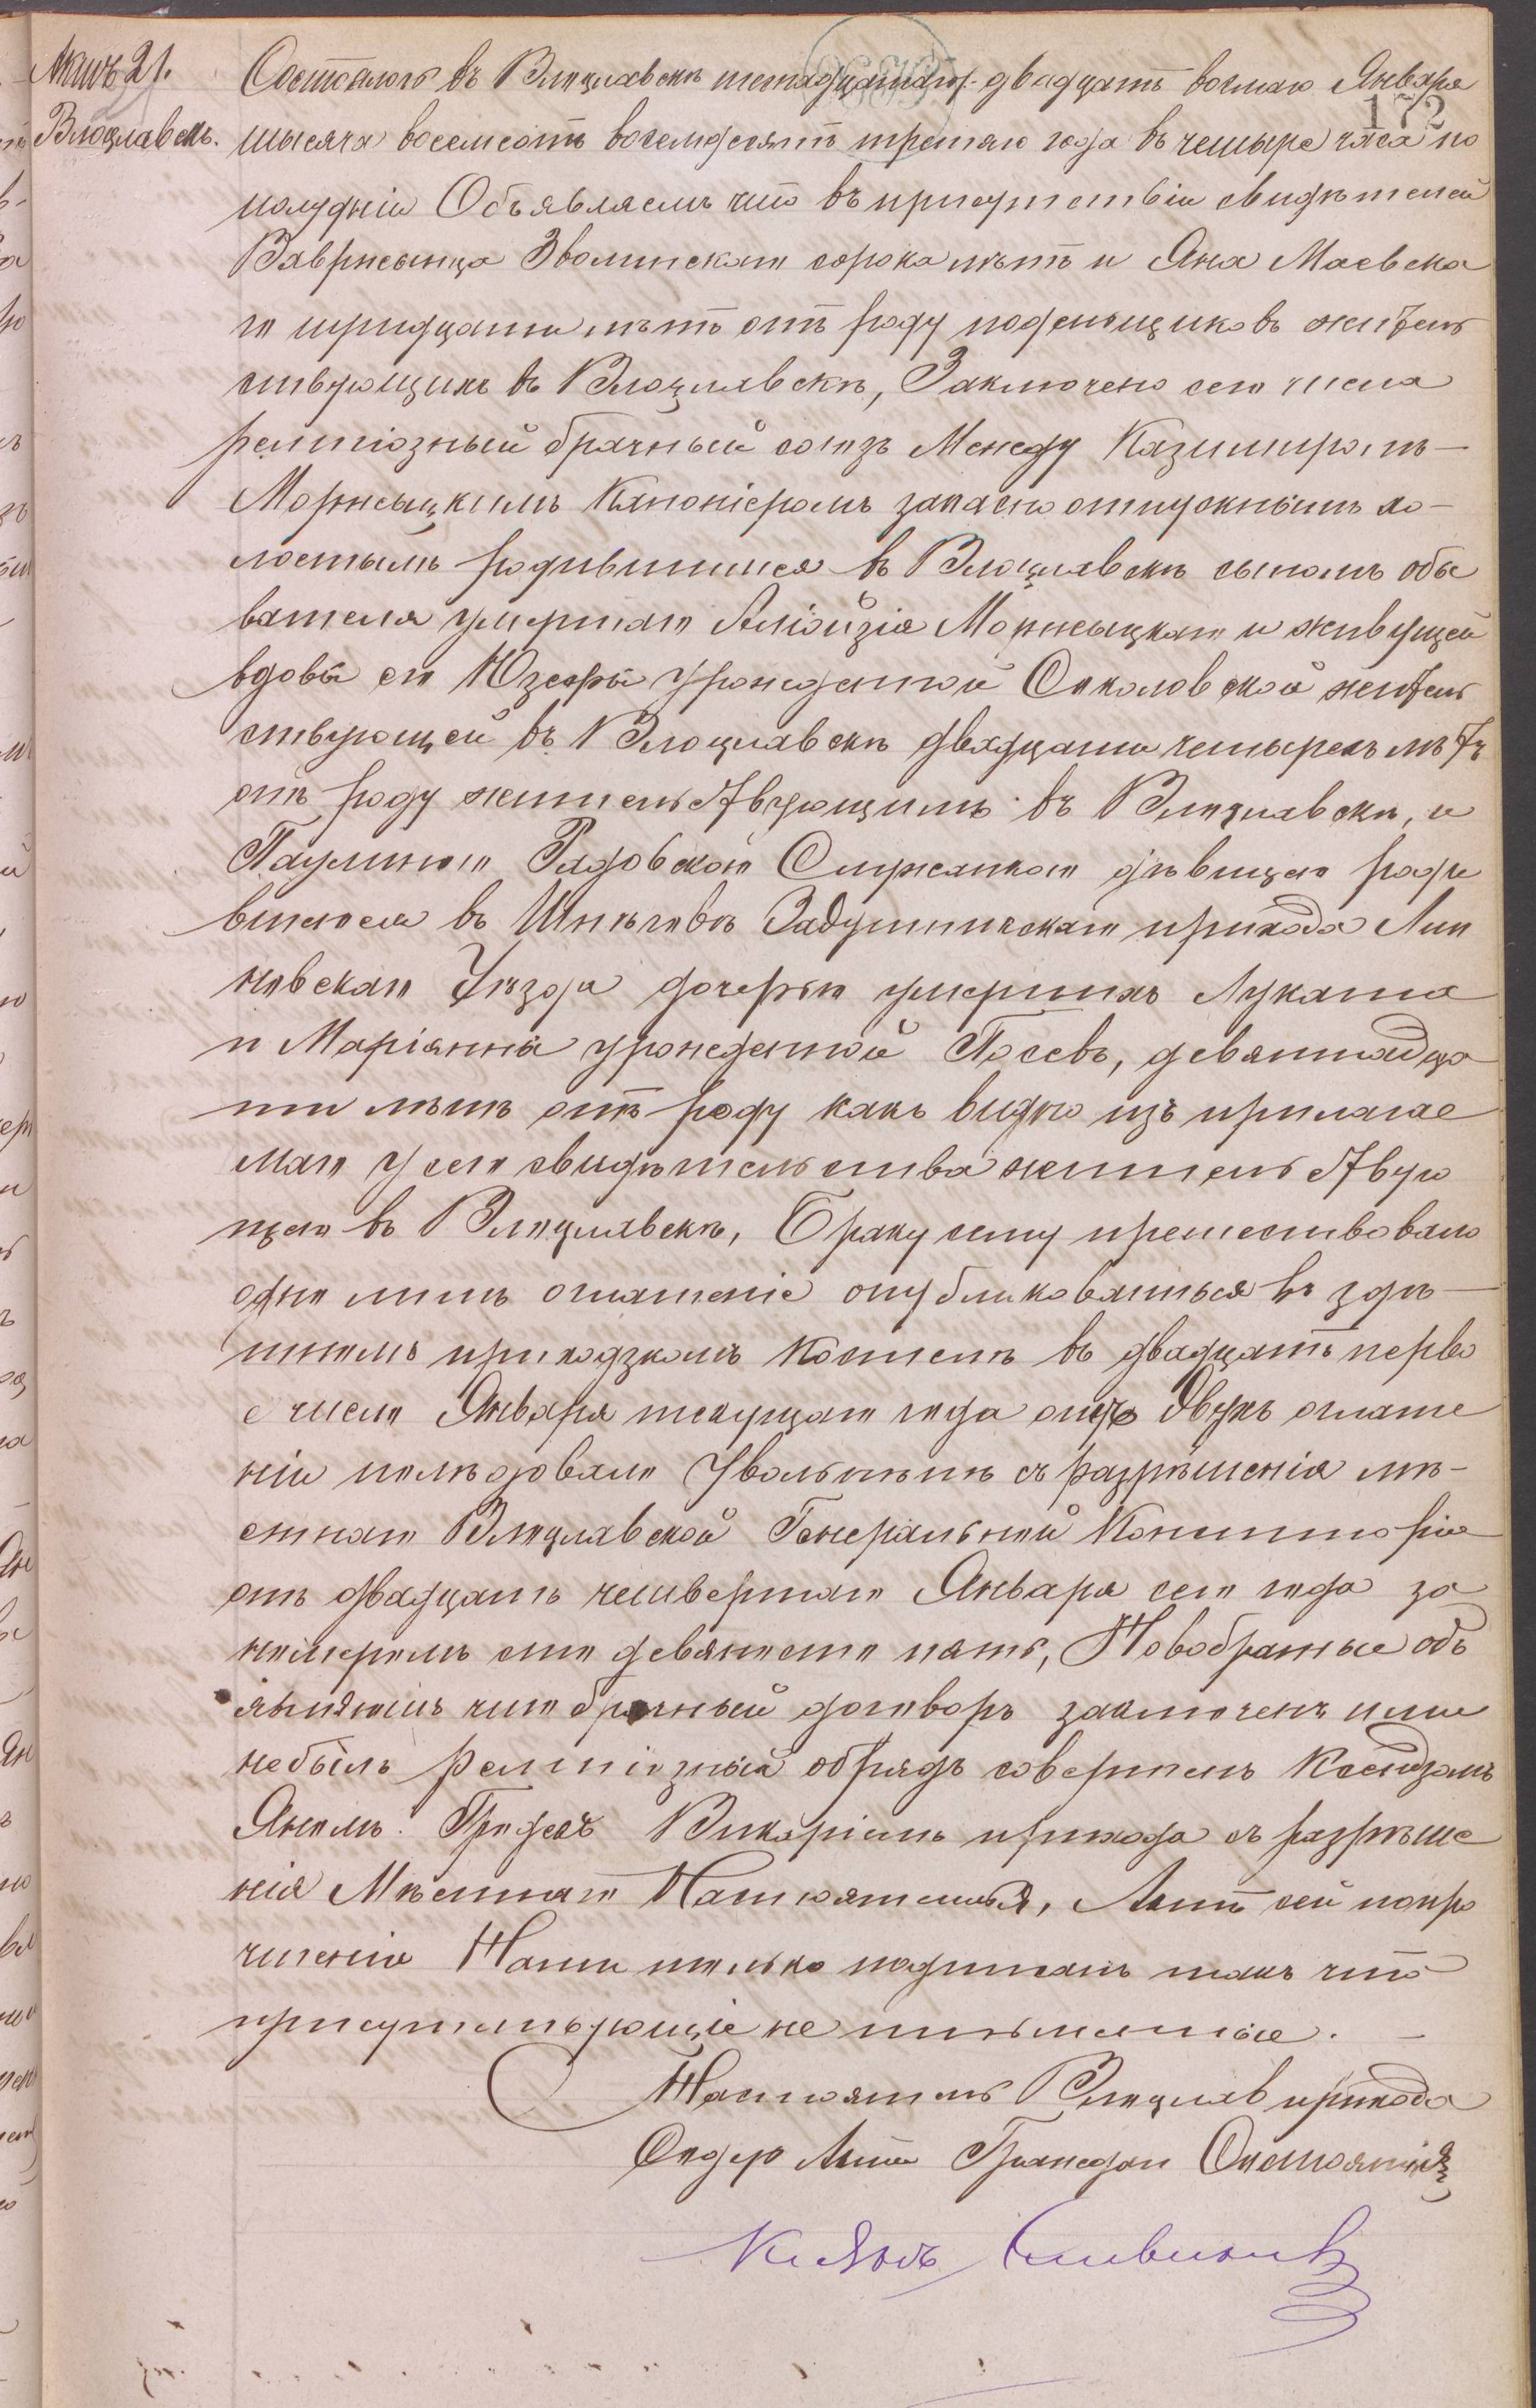 Актъ 21.
Влоцлавекъ.
172
Состоялось въ Влоцлавскѣ шестнадцатаго/двадцать восьмаго Января
тысяча восемсотъ восемдесятъ третяго года въ четыре часа по
полудніи Объявляемъ что въ присутствіи свидѣтелей
Вавржынца Зволинскаго сорока лѣтъ и Яна Маевска
го тридцати лѣтъ отъ роду поденьщиковъ житель
ствующихъ въ Влоцлавскѣ, Заключено сего числа
религіозный брачный союзъ Между Казимиромъ
Моржыцкимъ Канонiеромъ запасно отпускнымъ хо-
лостымъ родившимся въ Влоцлавскѣ сыномъ обы
вателя умершаго Алiойзiя Моржыцкаго и живущей
вдовы его Юзефы урожденной Соколовской житель
ствующей въ Влоцлавскѣ двадцати четырехъ лѣтъ
отъ роду жительствующимъ въ Влоцлавскѣ, и
Паулиною Радовскою Служанкою дѣвицею роди
вшеюся въ Задушникскаго прихода Лип
новскаго Уѣзда дочерью умершихъ Лукаша
и Маріянны урожденной Посевъ, девятнадца
ти лѣтъ отъ роду какъ видно изъ прилагае
маго у сего свидѣтельства жительствую
щею въ Влоцлавскѣ, Браку сему предшествовало
одно лишь оглашеніе опубликоваться въ здѣ
шнемъ приходзкомъ Костелѣ въ двадцать перво
е число Января текущаго года отъ двухъ оглаше
ніи увольненъ съ разрѣшенія мѣ-
стнаго Влоцлавской Генеральной Консисторіи
отъ двадцать четвертаго Января сего года за
номеромъ сто девяносто пять, Новобрачные объ
являютъ что брачный договоръ заключенъ ими
небылъ Религіозный обрядъ совершенъ Ксендзомъ
Яномъ Викаріемъ прихода съ разрѣше
нія Мѣстнаго Настоятеля, Актъ сей попро
читенію Нами только подписанъ такъ что
присутствующіе не письменные.
Настоятель Влоцлав прихода
Содер Акты Гражедан Состоянія